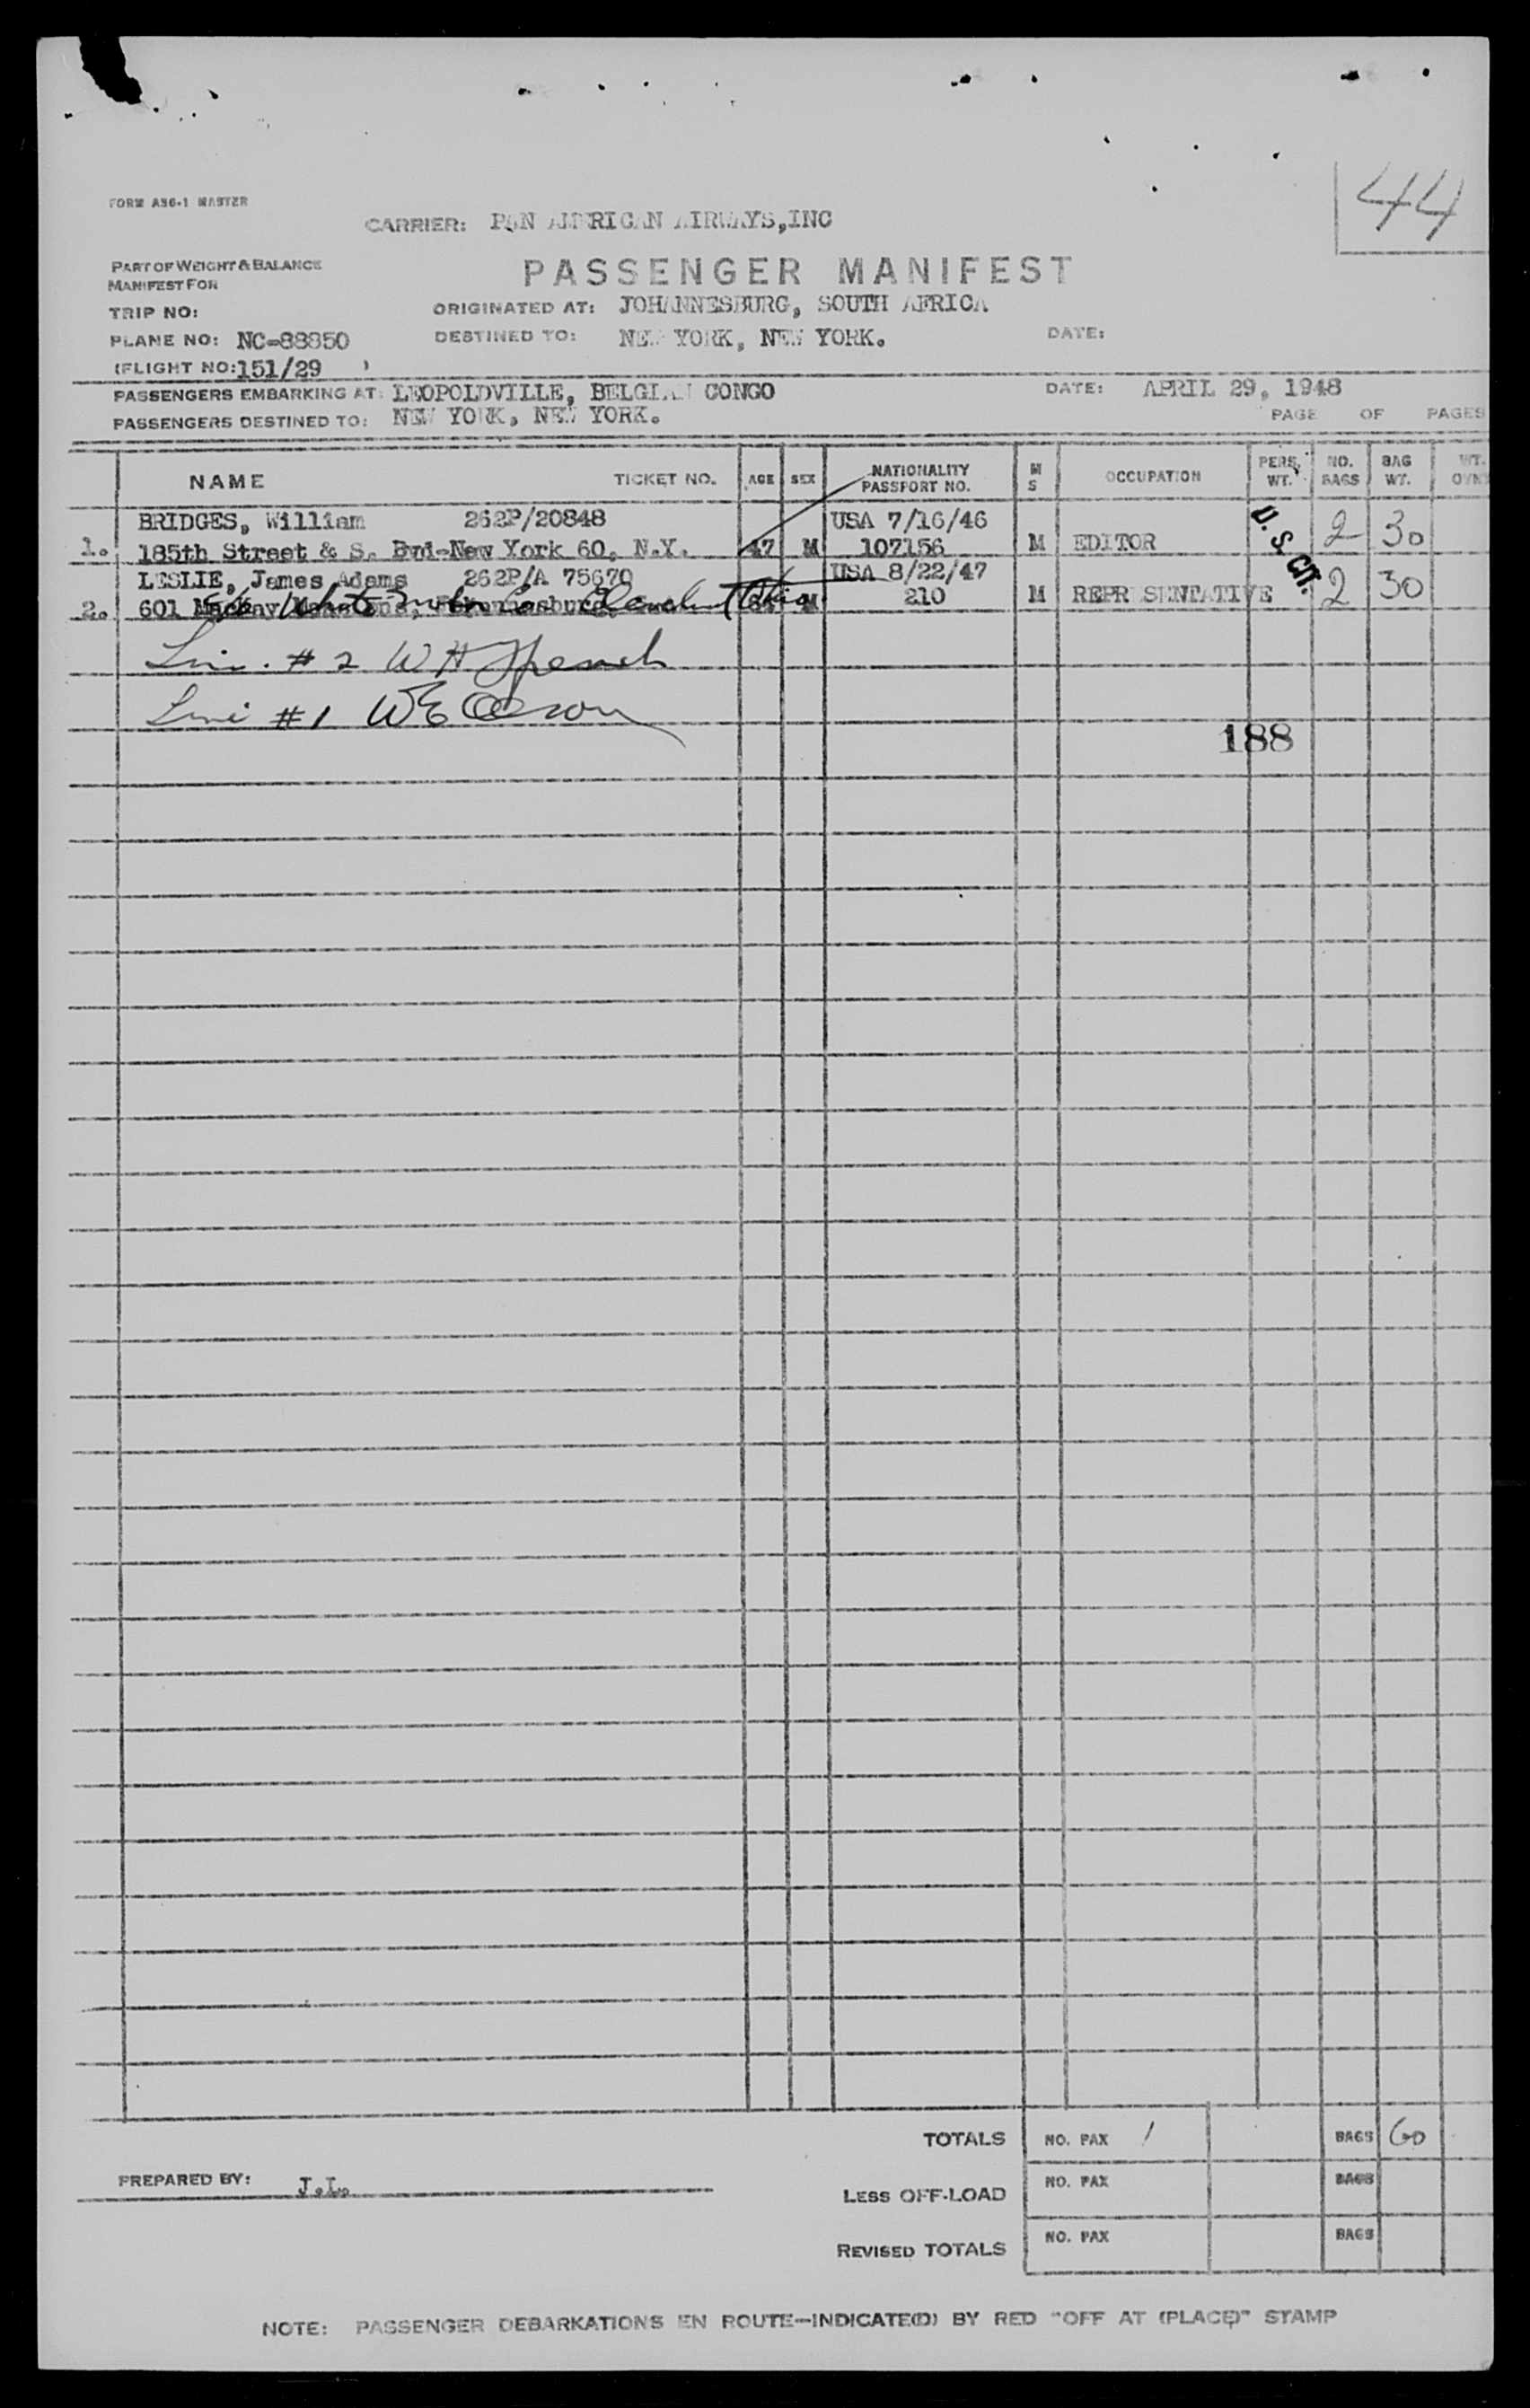 44
FORM A36-1 MASTER
CARRIER: PAN AMERICAN AIRWAYS,INC
PART OF WEIGHT & BALANCE
MANIFEST FOR
PASSENGER MANIFEST
TRIP NO:
ORIGINATED AT: JOHANNESBURG, SOUTH AFRICA
PLANE NO: NC-88850
DESTINED TO: NEW YORK, NEW YORK.
DATE:
(FLIGHT NO: 151/29 )
PASSENGERS EMBARKING AT: LEOPOLDVILLE, BELGIAN CONGO
DATE: APRIL 29, 1948
PASSENGERS DESTINED TO: NEW YORK, NEW YORK.
PAGE OF PAGES
NAME TICKET NO. AGE SEX NATIONALITY PASSPORT NO. M S OCCUPATION PERS. WT. NO. BAGS BAG WT. WT.
BRIDGES, William 262P/20848 USA 7/16/46
1. 185th Street & S. Bvd-New York 60, N.Y. 47 M 107156 M EDITOR U.S. CIT. 2 30
LESLIE, James Adams 262P/A 75670 USA 8/22/47
2. 601 M 210 M REPRESENTATIVE 2 30
Line #2 W H
Line #1 W E Olson
188
TOTALS NO. PAX 1 BAGS 60
PREPARED BY: J.L.
LESS OFF-LOAD NO. PAX BAGS
REVISED TOTALS NO. PAX BAGS
NOTE: PASSENGER DEBARKATIONS EN ROUTE—INDICATE(D) BY RED "OFF AT (PLACE)" STAMP